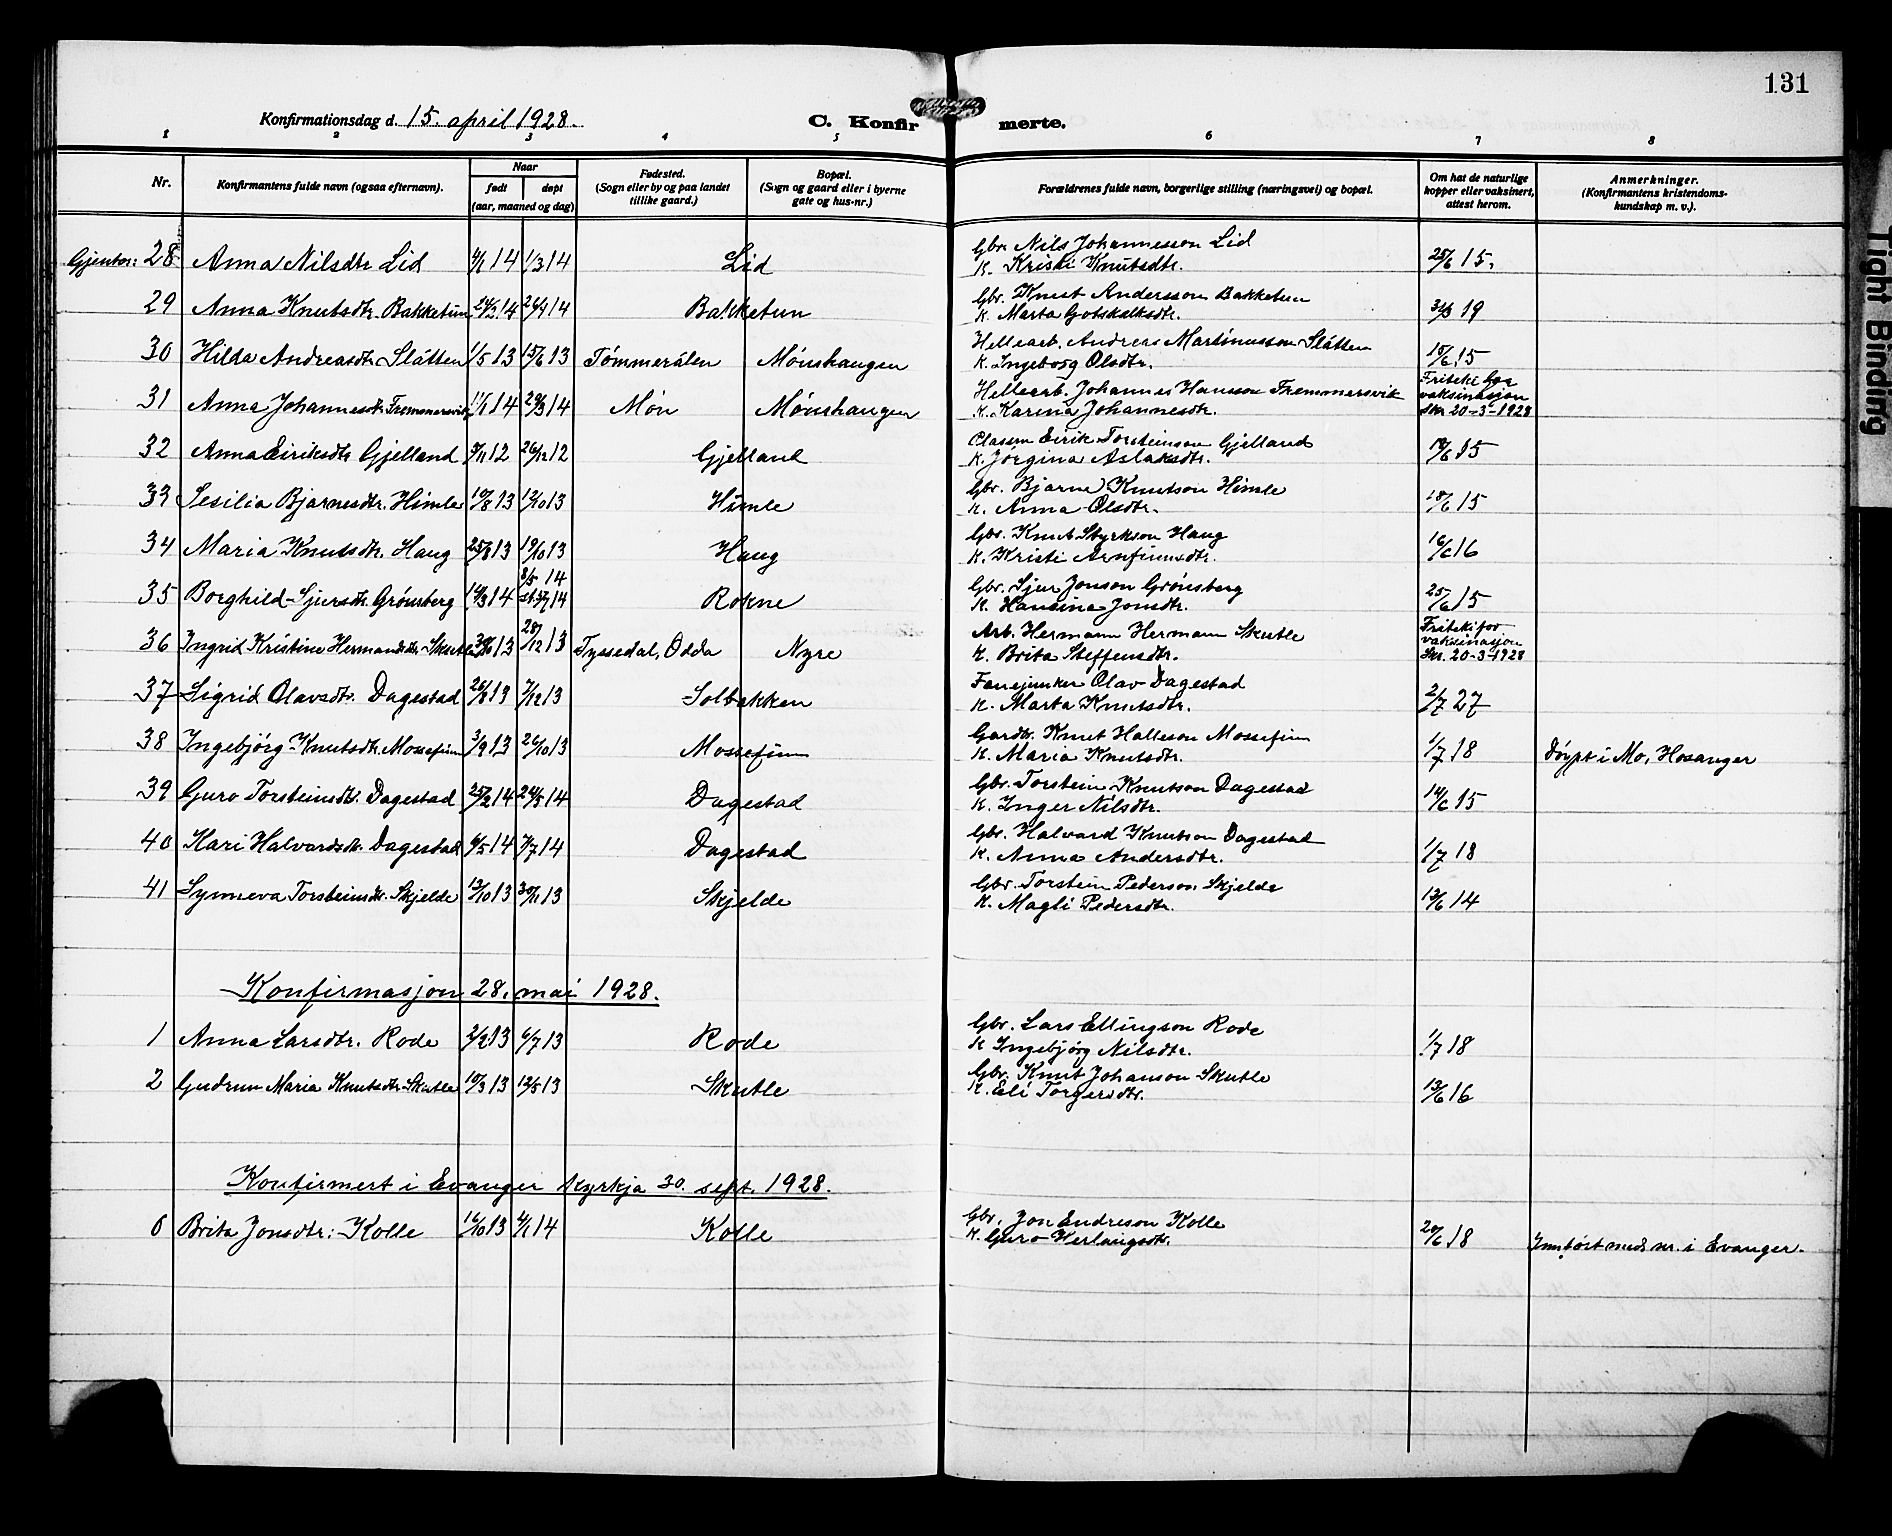 131
Konfirmationsdag d. 15. april 1928.
C. Konfirmerte.
1 2 3 4 5 6 7 8
Nr. Konfirmantens fulde navn (ogsaa efternavn). Naar født døpt (aar, maaned og dag) Fødested. (Sogn eller by og paa landet tillike gaard.) Bopæl. (Sogn og gaard eller i byerne gate og hus-nr.) Forældrenes fulde navn, borgerlige stilling (næringsvei) og bopæl. Om hat de naturlige kopper eller vaksinert, attest herom. Anmerkninger. (Konfirmantens kristendoms-kundskap m. v.).
Gjentor: 28 Anna Nilsdtr Lid 14 1/3 14 Lid Gbr. Nils Johannesson Lid 25/6 15.
K. Kristi Knutsdtr.
29 Anna Knutsdtr. Bakketun 14 14 Bakketun Gbr. Knut Andersson Bakketun 19
K. Marta Gotskalksdtr.
30 Hilda Andreasdtr. Slåtten 1/5 13 15/6 13 Tømmerålen Mønshaugen Hellearb. Andreas Martinusson Slåtten 15/6 15
K. Ingeborg Olsdtr.
31 Anna Johannesdtr Fremmersvik 11/1 14 29/3 14 Møn Mønshaugen Hellearb. Johannes Hansson Fremmersvik Friteke for
K. Karina Johannesdtr. vaksinasjon
Skr 20-3-1928
32 Anna Eiriksdtr Gjelland 12 26/12 12 Gjelland Eirik Torsteinson Gjelland 15
K. Jørgina Aslaksdtr.
33 Sesilia Bjarnesdtr. Himle 10/8 13 12/10 13 Himle Gbr. Bjarne Knutson Himle 18/6 15
K. Anna Olsdtr.
34 Maria Knutsdtr. Haug 25/8 13 19/10 13 Haug Gbr. Knut Styrkson Haug 16/6 16
K. Kristi Arnfinnsdtr.
35 Borghild Sjursdtr. Grønsberg 14 3/5 14 14 Rokne Gbr. Sjur Jonson Grønsberg 25/6 15
K. Hansina Jonsdtr.
36 Ingrid Kristine Hermandsdtr Skutle 13 28/12 13 Tyssedal, Odda Nyre Arb. Hermann Hermann Skutle Friteke for
K. Brita Steffensdtr. vaksinasjon
Skr. 20-3-1928
37 Sigrid Olavsdtr. Dagestad 13 7/12 13 Solbakken Fanejunker Olav Dagestad 2/7 27
K. Marta Knutsdtr.
38 Ingebjørg Knutsdtr. Mossefinn 3/9 13 26/10 13 Mossefinn Gardbr. Knut Halleson Mossefinn 1/7 18 Døypt i Mo, Hosanger
K. Maria Knutsdtr.
39 Guro Torsteinsdtr. Dagestad 25/2 14 24/5 14 Dagestad Gbr. Torstein Knutson Dagestad 14/6 15
K. Inger Nilsdtr.
40 Kari Halvardsdtr. Dagestad 14 14 Dagestad Gbr. Halvard Knutson Dagestad 1/7 18
K. Anna Andersdtr.
41 Synneva Torsteinsdtr. Skjelde 13/10 13 30/11 13 Skjelde Gbr. Torstein Pederson Skjelde 13/6 14
K. Magli Pedersdtr.
Konfirmasjon 28. mai 1928.
1 Anna Larsdtr. Rode 2/2 13 6/7 13 Rode Gbr. Lars Ellingson Rode 1/7 18
K Ingebjørg Nilsdtr.
2 Gudrun Maria Knutsdtr. Skutle 10/3 13 12/5 13 Skutle Gbr. Knut Johanson Skutle 13/6 16
K. Eli Torgersdtr.
Konfirmert i Evanger kyrkja 30. sept. 1928.
0 Brita Jonsdtr. Kolle 13 4/1 14 Kolle Gbr. Jon Endreson Kolle 20/6 18 Innført med nr. i Evanger.
K. Guro Herlaugsdtr.
Tight Binding